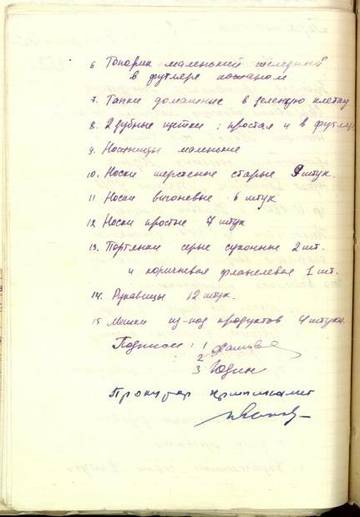 6 Топорик маленький железный
в футляре кожаном
7. Тапки домашние в зеленую клетку
8. 2 зубные щетки: простая и в футляре
9. Ножницы маленькие
10. Носки шерстяные старые 9 штук
11 Носки вигоневые 6 штук
12 Носки простые 7 штук
13. Портянки серые суконные 2 шт.
и коричневая фланелевая 1 шт.
14. Рукавицы 12 штук.
15. Мешки из-под продуктов 4 штуки
Подписи: 1
2.
3 Юдин
Прокурор криминалист